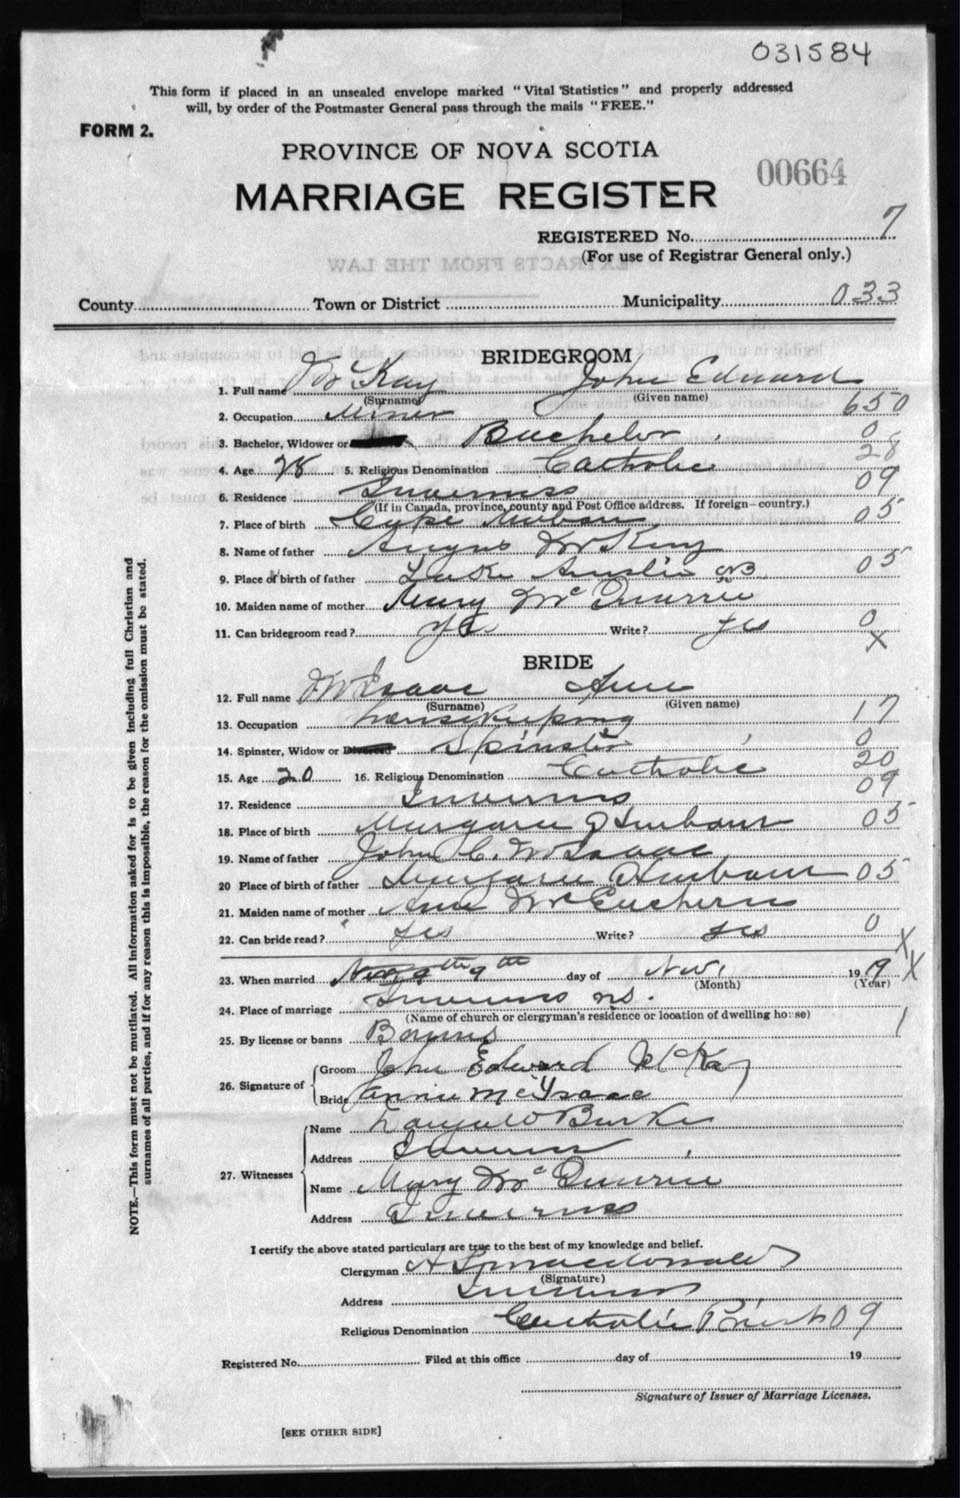 031584
This form if placed in an unsealed envelope marked "Vital Statistics" and properly addressed
will, by order of the Postmaster General pass through the mails "FREE."
FORM 2.
PROVINCE OF NOVA SCOTIA
00664
MARRIAGE REGISTER
REGISTERED No. 7
(For use of Registrar General only.)
EXTRACTS FROM THE LAW
County Town or District Municipality 033
BRIDEGROOM
1. Full name McKay John Edward
(Surname) (Given name)
2. Occupation Miner 650
3. Bachelor, Widower or Bachelor 0
4. Age 28 5. Religious Denomination Catholic 28
6. Residence Inverness 09
(If in Canada, province, county and Post Office address. If foreign—country.)
7. Place of birth Cape Mabou 05
8. Name of father Angus McKay
9. Place of birth of father Lake Ainslie CB 05
10. Maiden name of mother Mary McQuarrie
11. Can bridegroom read? Yes Write? Yes 0
X
BRIDE
12. Full name McIsaac Anne
(Surname) (Given name)
13. Occupation housekeeping 17
14. Spinster, Widow or Divorced Spinster 0
15. Age 20 16. Religious Denomination Catholic 20
17. Residence Inverness 09
18. Place of birth Margaree Harbour 05
19. Name of father John C. McIsaac
20 Place of birth of father Margaree Harbour 05
21. Maiden name of mother Ann McEachern
22. Can bride read? yes Write? yes 0
X
23. When married 9th day of Nov. 1919 X
(Month) (Year)
24. Place of marriage Inverness N.S.
(Name of church or clergyman's residence or location of dwelling house)
25. By license or banns Banns 1
26. Signature of
Groom John Edward McKay
Bride Annie McIsaac
27. Witnesses
Name Burke
Address Inverness
Name Mary McQuarrie
Address Inverness
I certify the above stated particulars are true to the best of my knowledge and belief.
Clergyman A Macdonald
(Signature)
Address Inverness
Religious Denomination Catholic Priest 09
Registered No. Filed at this office day of 19
Signature of Issuer of Marriage Licenses.
[SEE OTHER SIDE]
NOTE.—This form must not be mutilated. All information asked for is to be given including full Christian and
surnames of all parties, and if for any reason this is impossible, the reason for the omission must be stated.